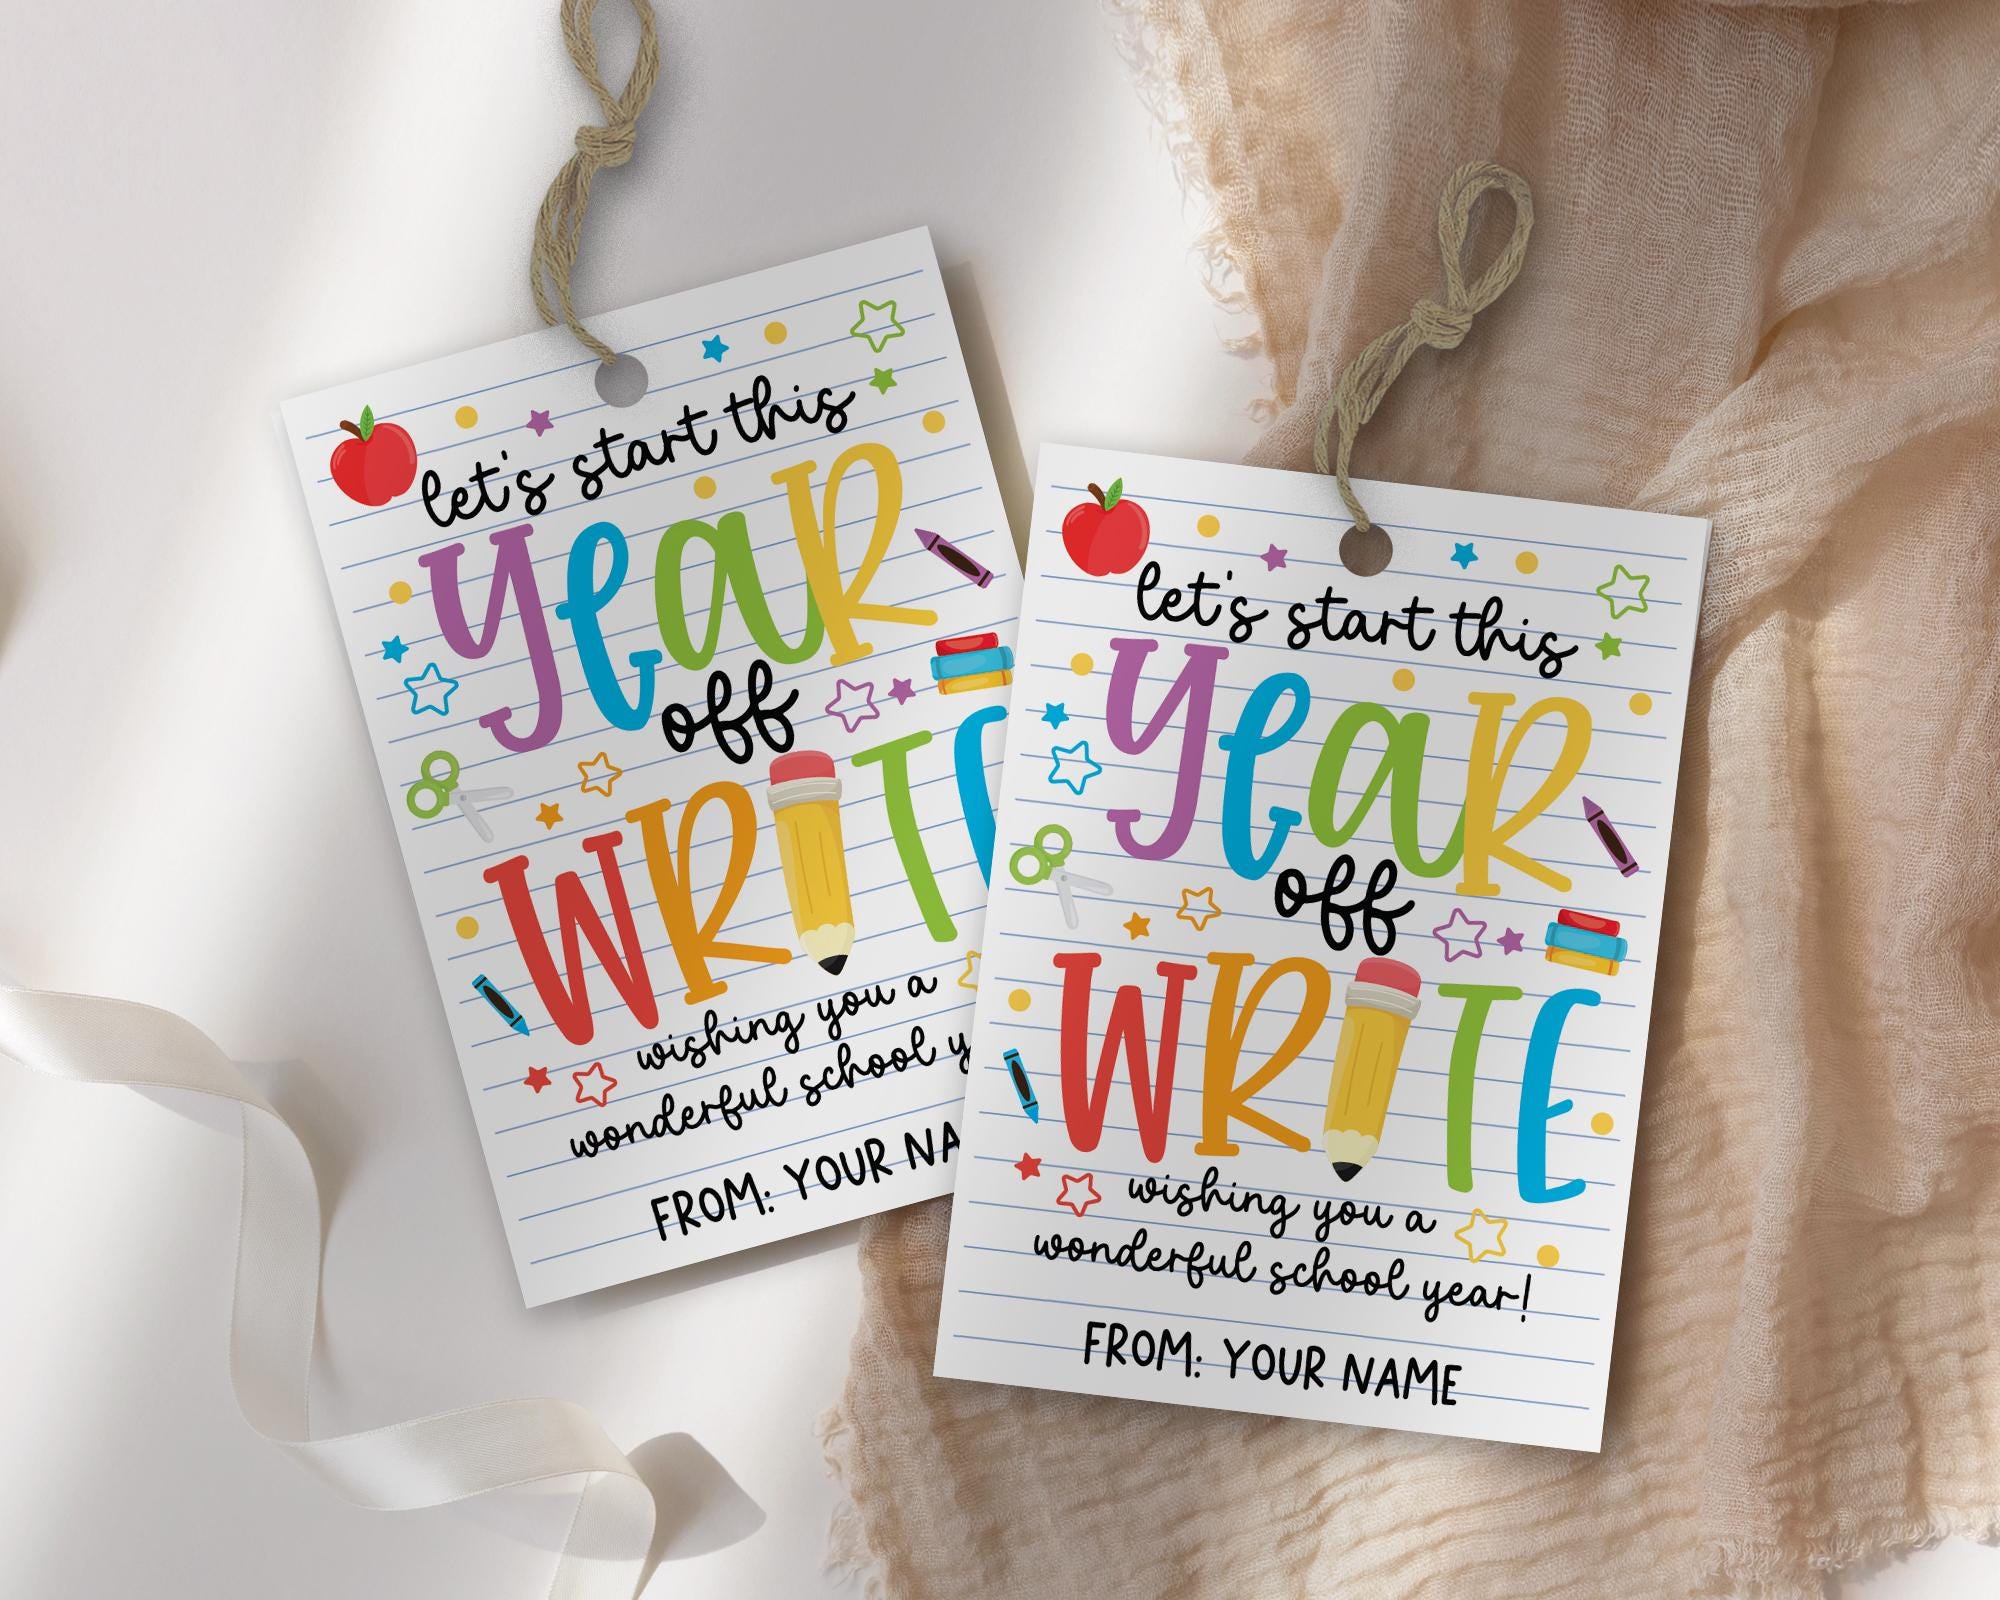 let's start this
YEAR
off
WRITE
wishing you a
wonderful school y
FROM: YOUR NA
let's start this
YEAR
off
WRITE
wishing you a
wonderful school year!
FROM: YOUR NAME